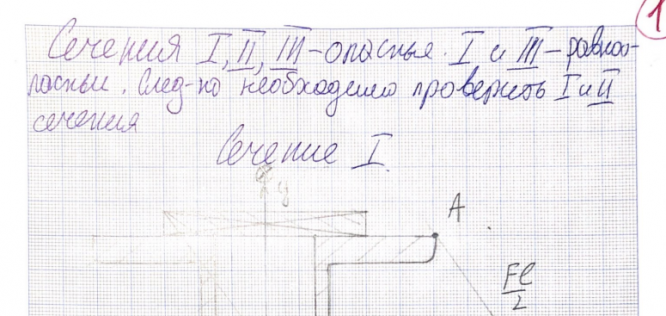 1
Сечения I, II, III - опасные. I и III - равноо-
пасны. След-но необходимо проверить I и II
сечения
Сечение I.
y
A
Fl
2